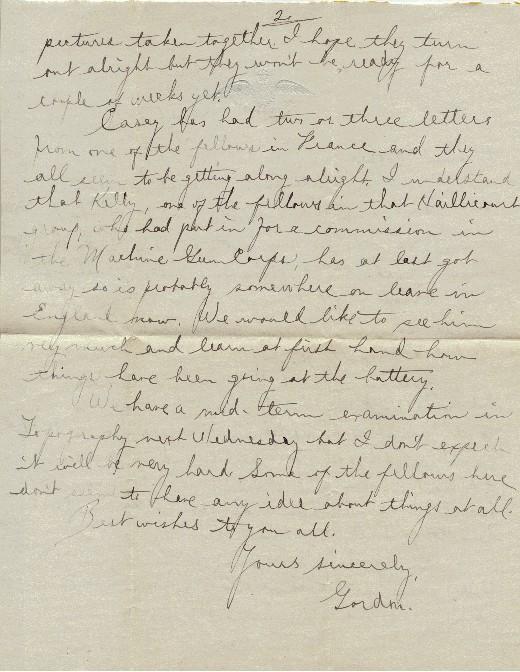 2.
pictures taken together. I hope they turn
out alright but they won't be ready for a
couple of weeks yet.
Casey has had two or three letters
from one of the fellows in France and they
all seem to be getting along alright. I understand
that Kelly, one of the fellows in that Haillicourt
group, who had put in for a commission in
the Machine Gun Corps, has at last got
away so is probably somewhere on leave in
England now. We would like to see him
very much and learn at first hand how
things have been going at the battery.
We have a mid-term examination in
Topography next Wednesday but I don't expect
it will be very hard. Some of the fellows here
don't seem to have any idea about things at all.
Best wishes to you all.
Yours sincerely,
Gordon.